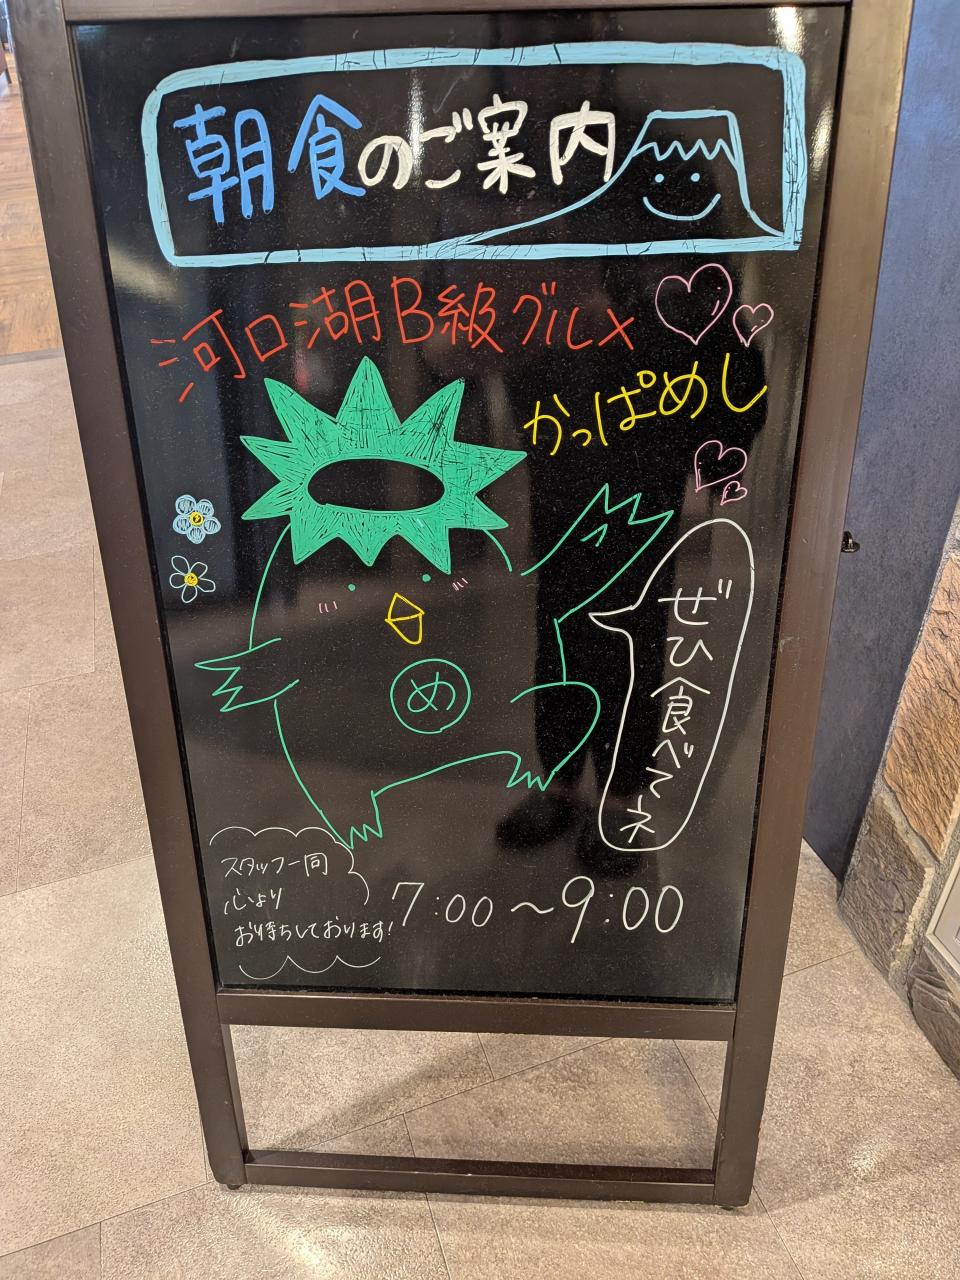 朝食のご案内
河口湖B級グルメ
かっぱめし
め
ぜひ食べてネ
スタッフ一同
心より
お待ちしております!
7:00～9:00